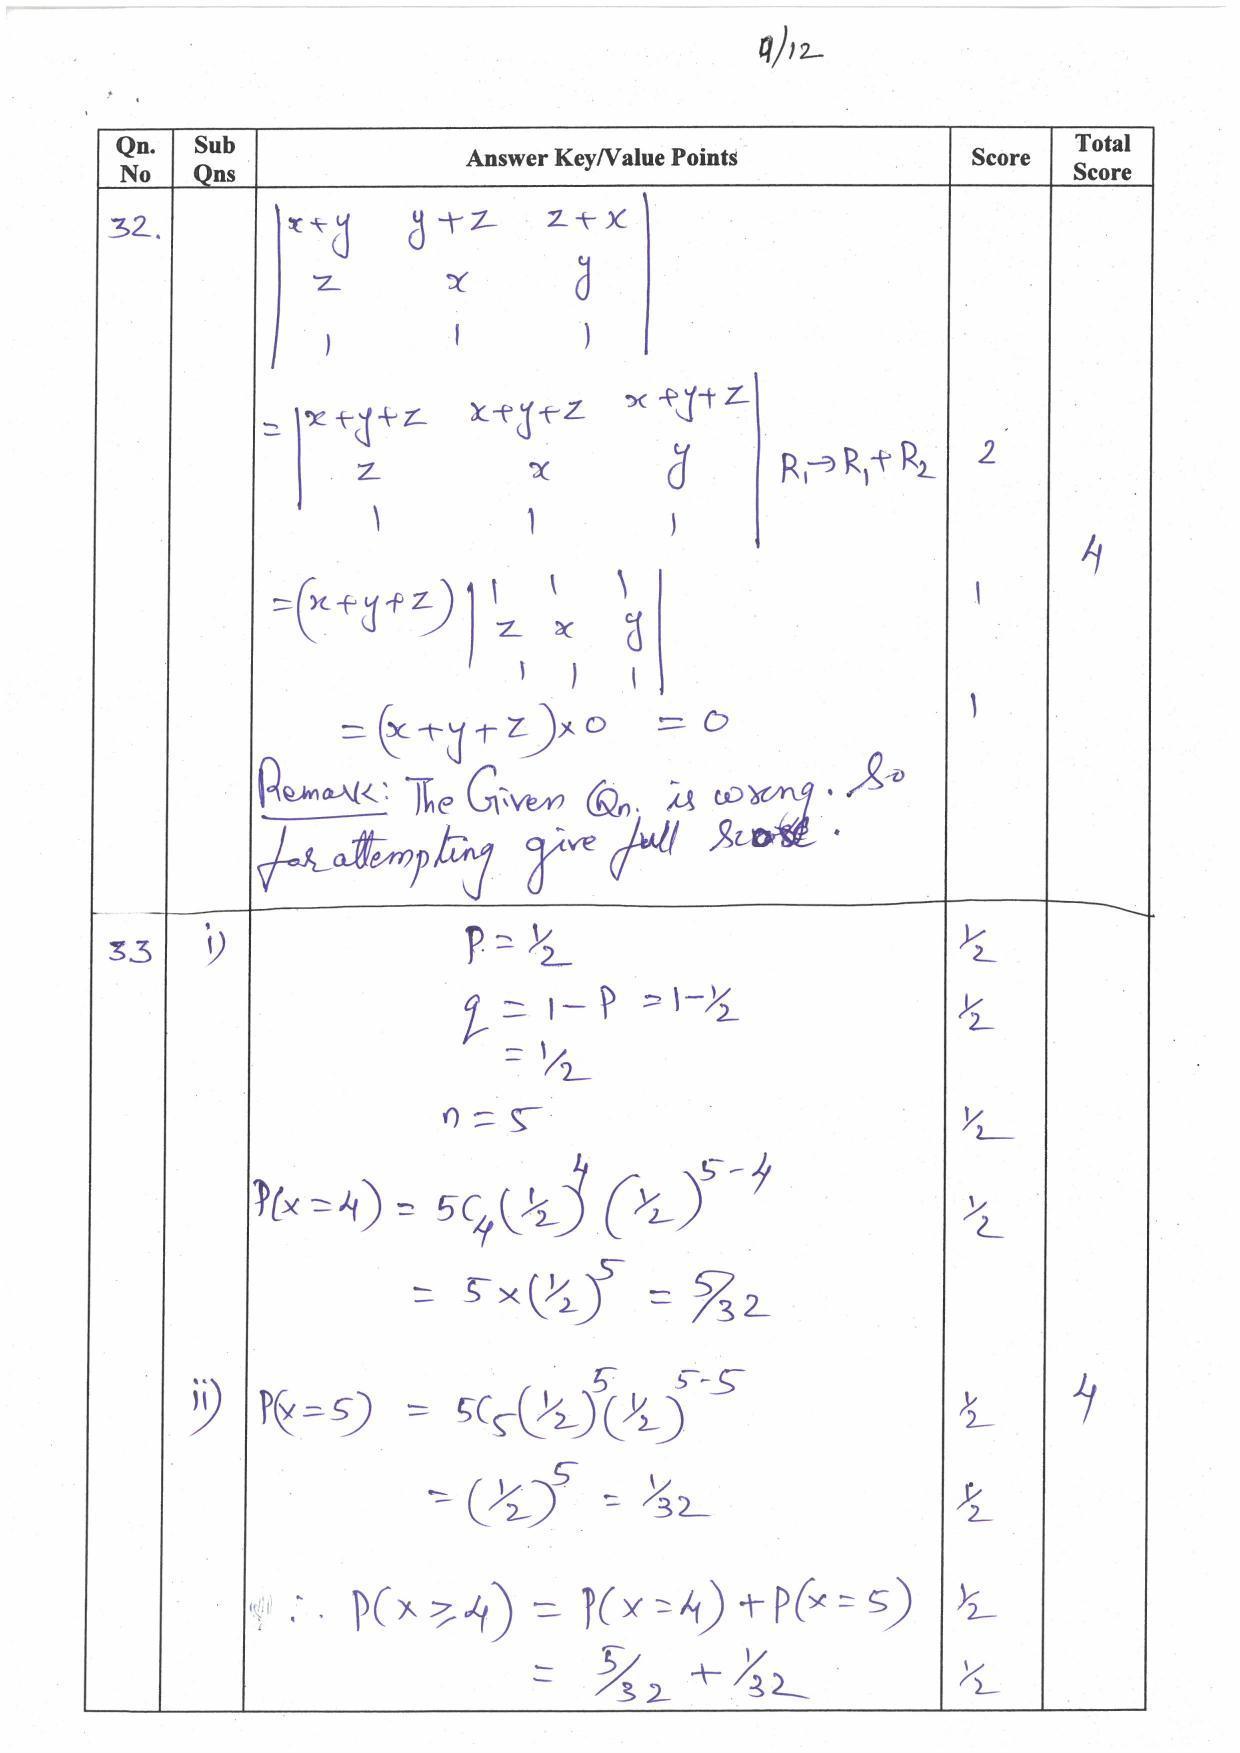 9/12
Qn. No Sub Qns Answer Key/Value Points Score Total Score
32. | x+y y+z z+x |
| z x y |
| 1 1 1 |
= | x+y+z x+y+z x+y+z |
| z x y | R₁→R₁+R₂ 2
| 1 1 1 |
4
=(x+y+z) | 1 1 1 | 1
| z x y |
| 1 1 1 |
=(x+y+z)×0 = 0 1
Remark: The Given Qn. is wrong. So
for attempting give full score.
33 i) P = ½ ½
q = 1-P = 1-½ ½
= ½
n = 5 ½
P(x=4) = 5C₄(½)⁴(½)⁵⁻⁴ ½
= 5×(½)⁵ = 5/32
ii) P(x=5) = 5C₅(½)⁵(½)⁵⁻⁵ ½ 4
= (½)⁵ = 1/32 ½
∴ P(x≥4) = P(x=4)+P(x=5) ½
= 5/32 + 1/32 ½